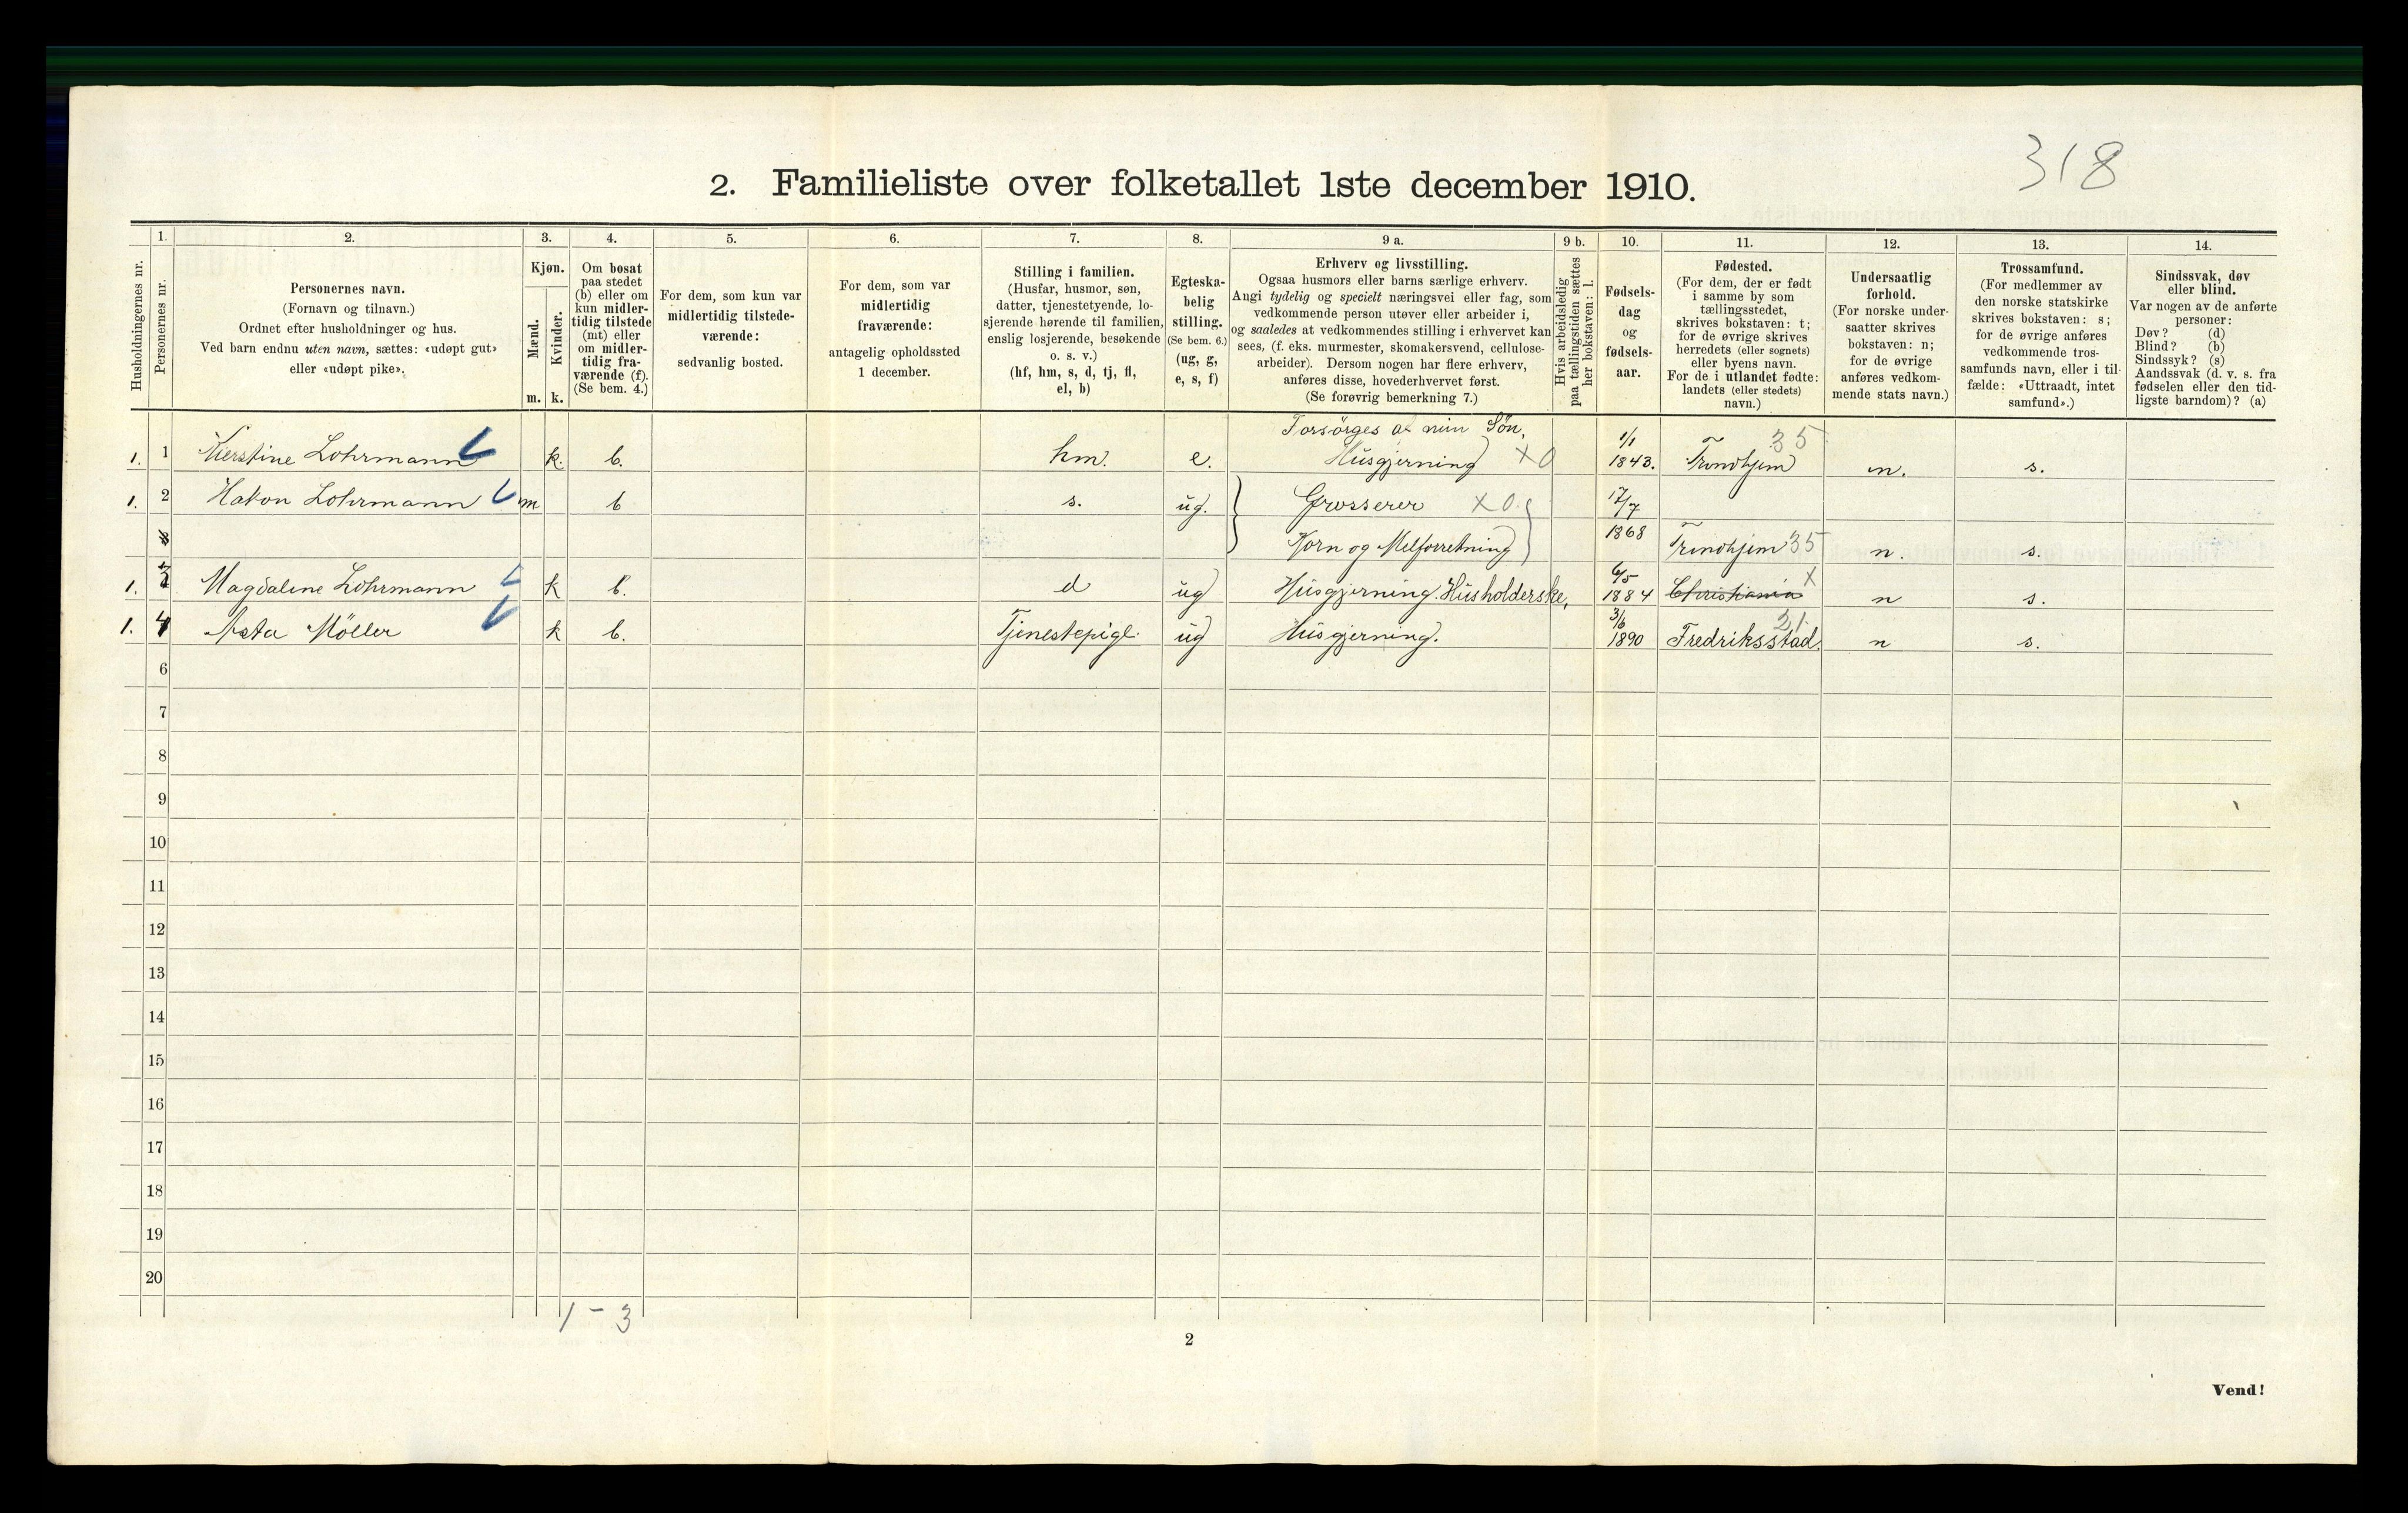 318
2. Familieliste over folketallet 1ste december 1910.
1. 2. 3. 4. 5. 6. 7. 8. 9 a. 9 b. 10. 11. 12. 13. 14.
Husholdningernes nr.
Personernes nr.
Personernes navn.
(Fornavn og tilnavn.)
Ordnet efter husholdninger og hus.
Ved barn endnu uten navn, sættes: «udøpt gut»
eller «udøpt pike».
Kjøn.
Mænd.
Kvinder.
m. k.
Om bosat
paa stedet
(b) eller om
kun midler-
tidig tilstede
(mt) eller
om midler-
tidig fra-
værende (f).
(Se bem. 4.)
For dem, som kun var
midlertidig tilstede-
værende:
sedvanlig bosted.
For dem, som var
midlertidig
fraværende:
antagelig opholdssted
1 december.
Stilling i familien.
(Husfar, husmor, søn,
datter, tjenestetyende, lo-
sjerende hørende til familien,
enslig losjerende, besøkende
o. s. v.)
(hf, hm, s, d, tj, fl,
el, b)
Egteska-
belig
stilling.
(Se bem. 6.)
(ug, g,
e, s, f)
Erhverv og livsstilling.
Ogsaa husmors eller barns særlige erhverv.
Angi tydelig og specielt næringsvei eller fag, som
vedkommende person utøver eller arbeider i,
og saaledes at vedkommendes stilling i erhvervet kan
sees, (f. eks. murmester, skomakersvend, cellulose-
arbeider). Dersom nogen har flere erhverv,
anføres disse, hovederhvervet først.
(Se forøvrig bemerkning 7.)
Hvis arbeidsledig
paa tællingstiden sættes
her bokstaven: l.
Fødsels-
dag
og
fødsels-
aar.
Fødested.
(For dem, der er født
i samme by som
tællingsstedet,
skrives bokstaven: t;
for de øvrige skrives
herredets (eller sognets)
eller byens navn.
For de i utlandet fødte:
landets (eller stedets)
navn.)
Undersaatlig
forhold.
(For norske under-
saatter skrives
bokstaven: n;
for de øvrige
anføres vedkom-
mende stats navn.)
Trossamfund.
(For medlemmer av
den norske statskirke
skrives bokstaven: s;
for de øvrige anføres
vedkommende tros-
samfunds navn, eller i til-
fælde: «Uttraadt, intet
samfund».)
Sindssvak, døv
eller blind.
Var nogen av de anførte
personer:
Døv? (d)
Blind? (b)
Sindssyk? (s)
Aandssvak (d. v. s. fra
fødselen eller den tid-
ligste barndom)? (a)
Forsörges af min Sön, 1/1 35
1. 1 Kierstine Lohrmann k. b. hm. e. Husgjerning X0 1843. Trondhjem n. s.
1. 2 Hakon Lohrmann m b s. ug. Grosserer X0. 17/7
3 Korn og Melforretning 1868 Trondhjem 35 n. s.
6/5 X
1. 3 Magdalene Lohrmann k b. d ug Husgjerning. Husholderske, 1884 Christiania n s.
3/6 21
1. 4 Asta Möller k b. Tjenestepige ug Husgjerning. 1890 Fredriksstad. n s.
6
7
8
9
10
11
12
13
14
15
16
17
18
19
20
1 - 3
2
Vend!